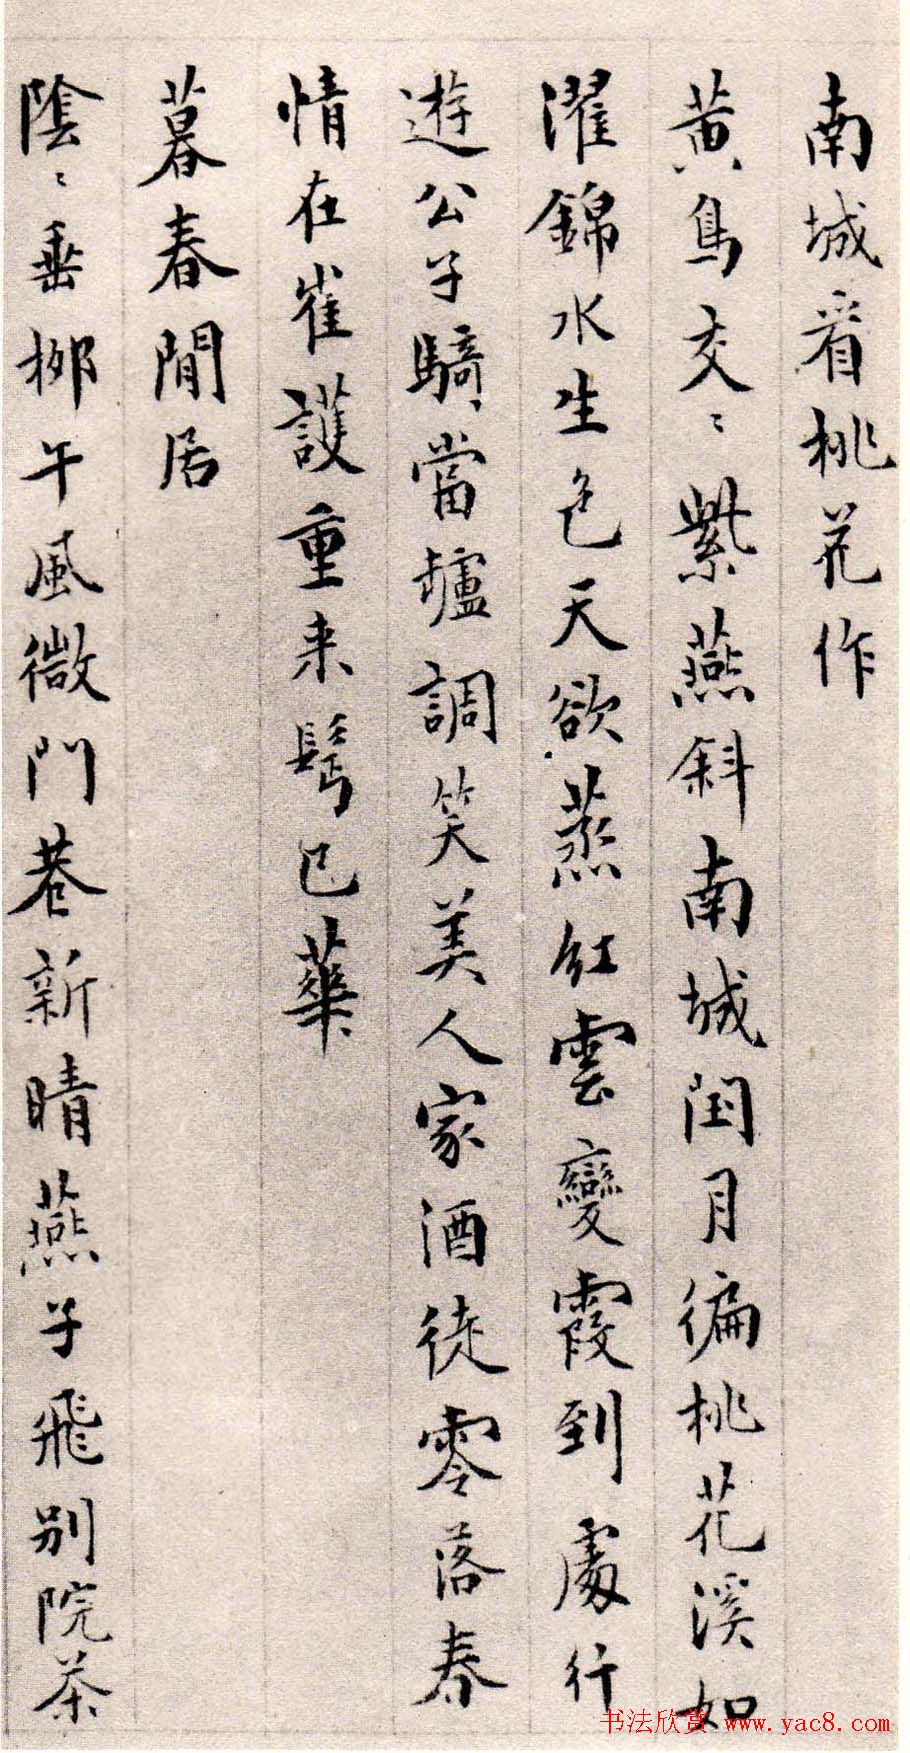 南城看桃花作
黃鳥交〻紫燕斜南城閏月徧桃花溪如
濯錦水生色天欲蒸紅雲變霞到處行
遊公子騎當壚調笑美人家酒徒零落春
情在崔護重来鬂已華
暮春閒居
陰〻垂柳午風微門巷新晴燕子飛別院茶
书法欣赏 www.yac8.com